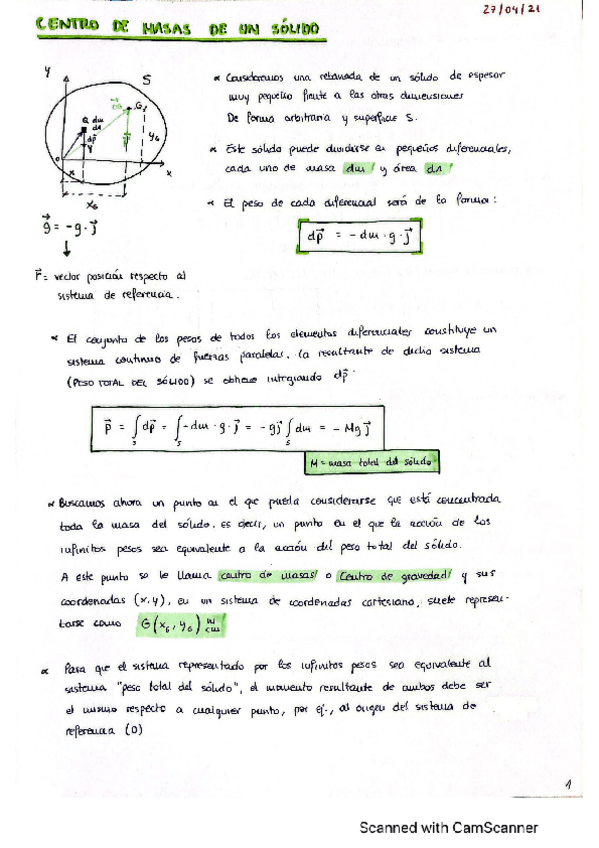 27/04/21
CENTRO DE MASAS DE UN SÓLIDO
* Consideremos una rebanada de un sólido de espesor
muy pequeño frente a las otras dimensiones
De forma arbitraria y superficie S.
* Este sólido puede dividirse en pequeños diferenciales,
cada uno de masa dm y área dA
* El peso de cada diferencial será de la forma:
y
S
G
Q dm
dA
dp⃗
y_G
O
x
x
x_G
g⃗ = -g·j⃗
dp⃗ = - dm · g · j⃗
r⃗ = vector posición respecto al
sistema de referencia.
* El conjunto de los pesos de todos los elementos diferenciales constituye un
sistema continuo de fuerzas paralelas. La resultante de dicho sistema
(PESO TOTAL DEL SÓLIDO) se obtiene integrando dp⃗.
p⃗ = ∫_S dp⃗ = ∫_S -dm · g · j⃗ = -gj⃗ ∫_S dm = - Mg j⃗
M = masa total del sólido
* Buscamos ahora un punto en el que pueda considerarse que está concentrada
toda la masa del sólido. Es decir, un punto en el que la acción de los
infinitos pesos sea equivalente a la acción del peso total del sólido.
A este punto se le llama centro de masas o centro de gravedad y sus
coordenadas (x,y), en un sistema de coordenadas cartesiano, suele represen-
tarse como G(x_G, y_G) m cm
* Para que el sistema representado por los infinitos pesos sea equivalente al
sistema "peso total del sólido", el momento resultante de ambos debe ser
el mismo respecto a cualquier punto, por ej., al origen del sistema de
referencia (O)
1
Scanned with CamScanner